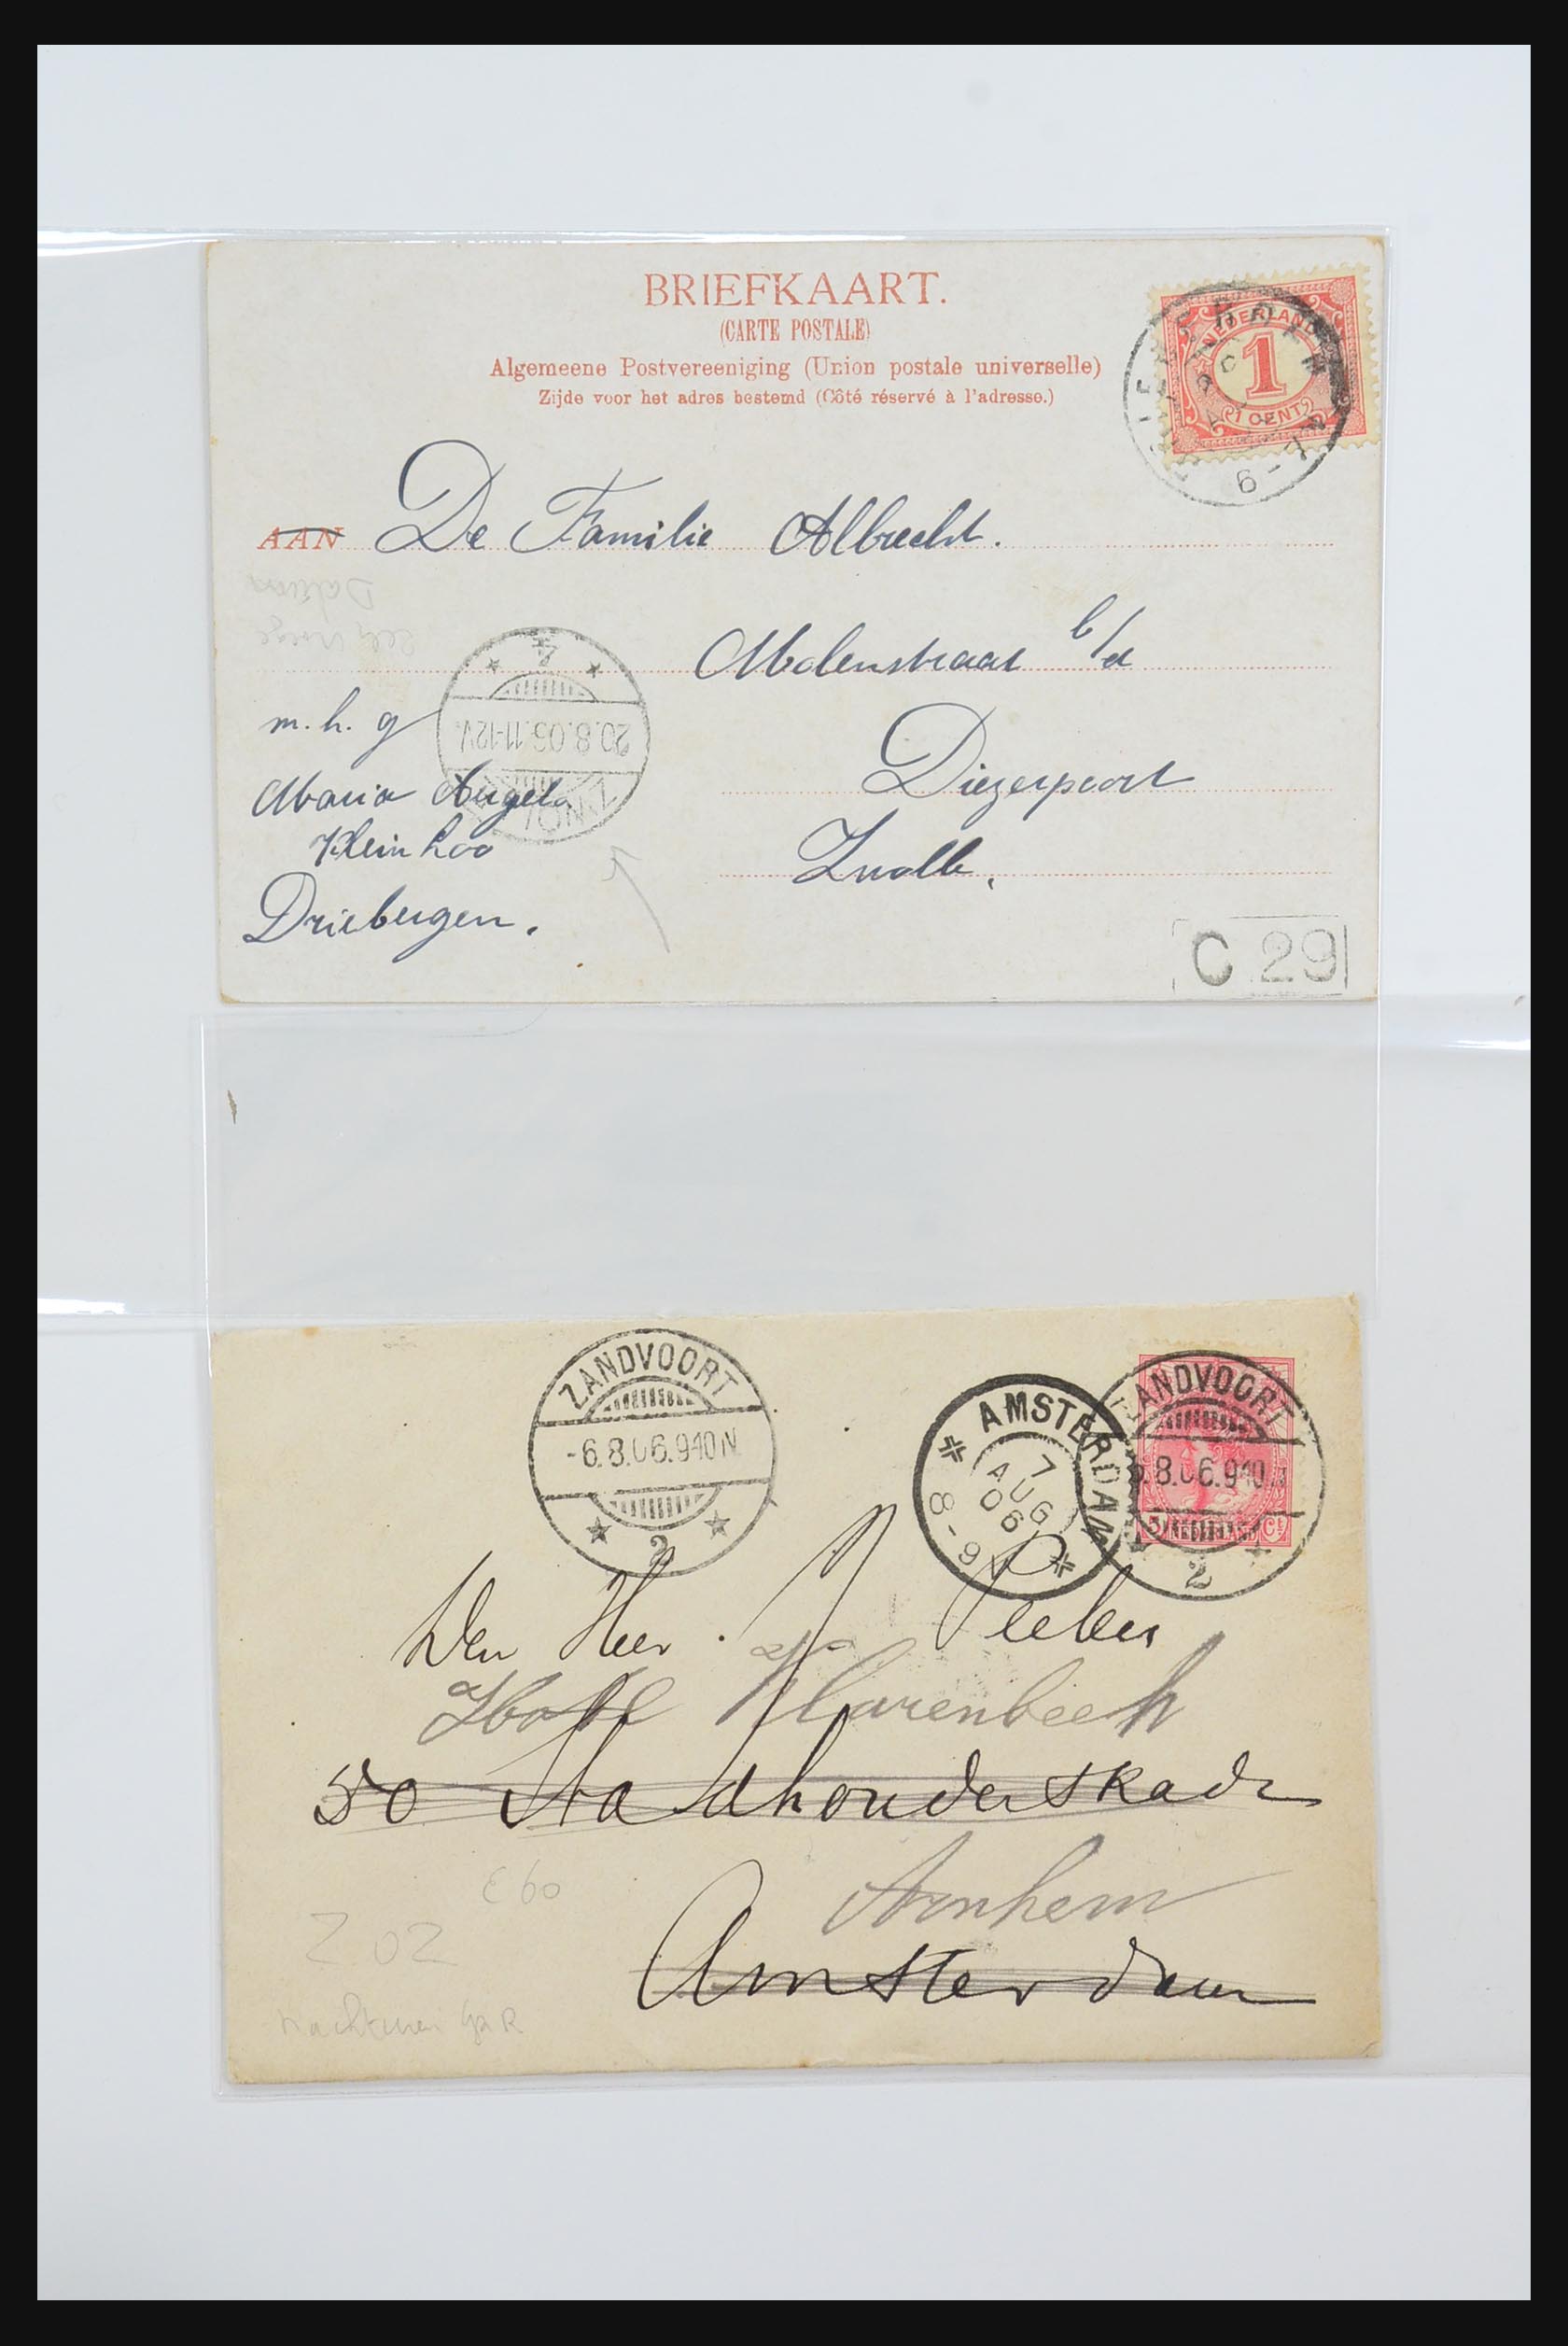 BRIEFKAART.
(CARTE POSTALE)
Algemeene Postvereeniging (Union postale universelle)
Zijde voor het adres bestemd (Côté réservé à l'adresse.)
NEDERLAND
1
1 CENT
AAN De Familie Albrecht.
Molenstraat b/d
Diezerpoort
Zwolle.
m. h. g
Maria Angela
Klein Loo
Driebergen.
20.8.06.11-12V.
C 29
ZANDVOORT
-6.8.06.9-10N
2
AMSTERDAM
7
AUG
06
8-9V
ZANDVOORT
6.8.06.9-10N
2
NEDERLAND
Den Heer
Hotel Klarenbeek
50 Stadhouderskade
Arnhem
Amsterdam
€60
Z 02